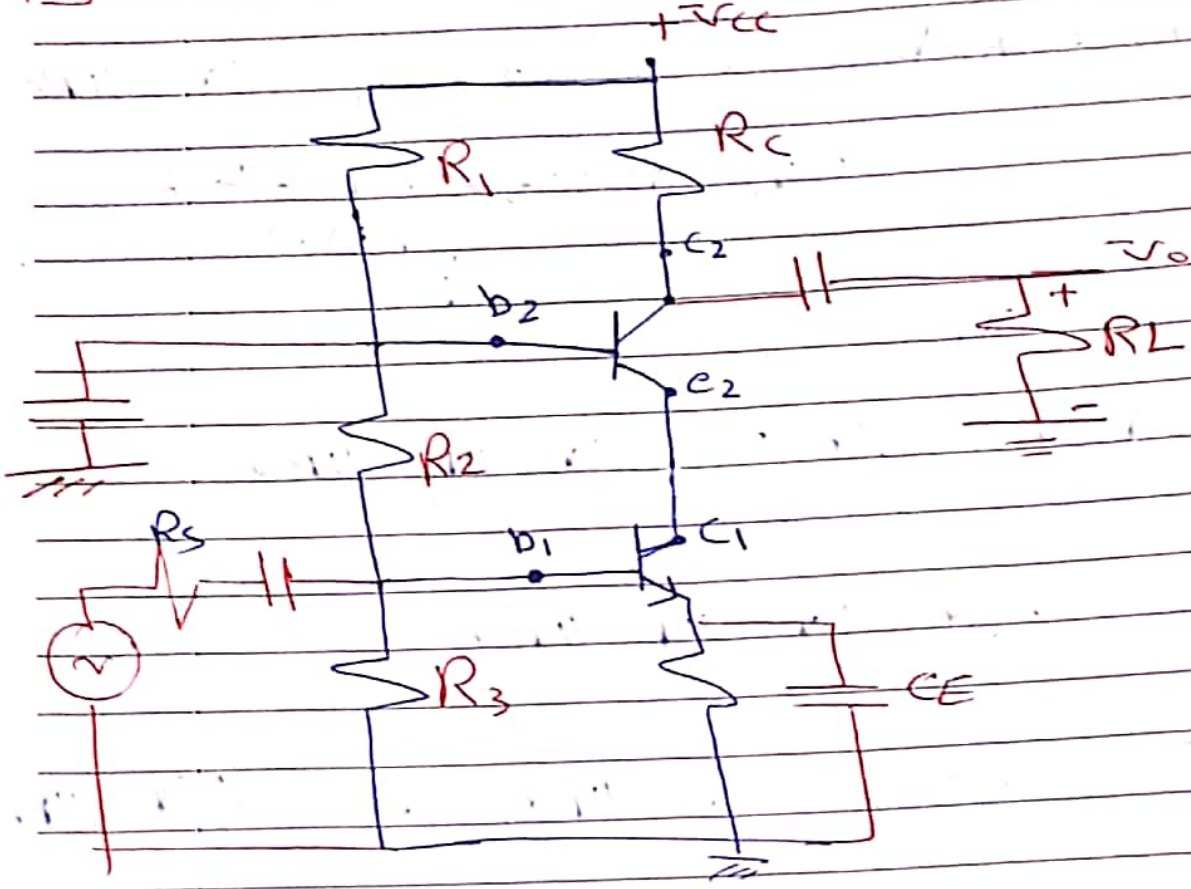 + Vcc
R1
Rc
C2
Vo
b2
+
RL
e2
-
R2
Rs
b1
C1
R3
CE